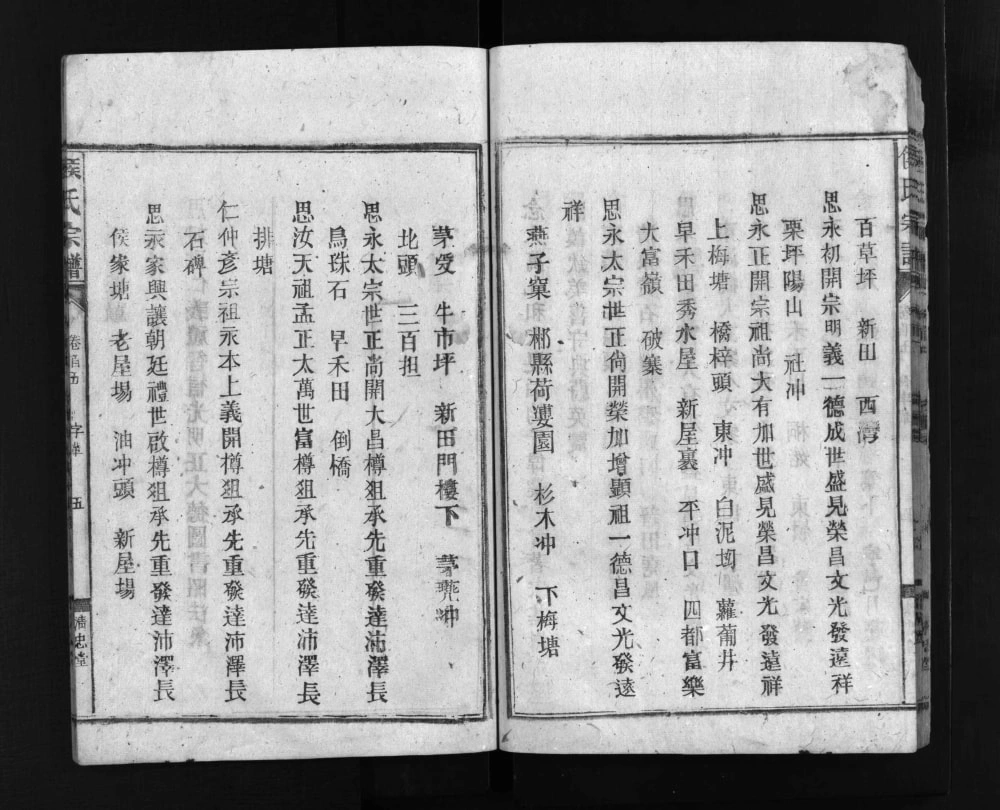 百草坪 新田 西灣
思永初開宗明義一德成世盛見榮昌文光發遠祥
栗坪陽山 社冲
思永正開宗祖尚大有加世盛見榮昌文光發遠祥
上梅塘 橋梓頭 東冲 白泥坳 蘿葡井
早禾田秀水屋 新屋裏 平冲口 四都富樂
大富嶺 破寨
思永太宗世正尚開榮加增顯祖一德昌文光發遠
祥
燕子窠 郴縣荷塘園 杉木冲 下梅塘
茅受 牛市坪 新田門樓下 茅
北頭 三百担
思永太宗世正尚開大昌樽狙承先重發達沛澤長
鳥珠石 早禾田 倒橋
思汝天祖孟正太萬世富樽狙承先重發達沛澤長
排塘
仁仲彥宗祖永本上義開樽狙承先重發達沛澤長
石碑
思永家興讓朝廷禮世啟樽狙承先重發達沛澤長
侯家塘 老屋場 油冲頭 新屋場
侯氏宗譜 五
忠堂